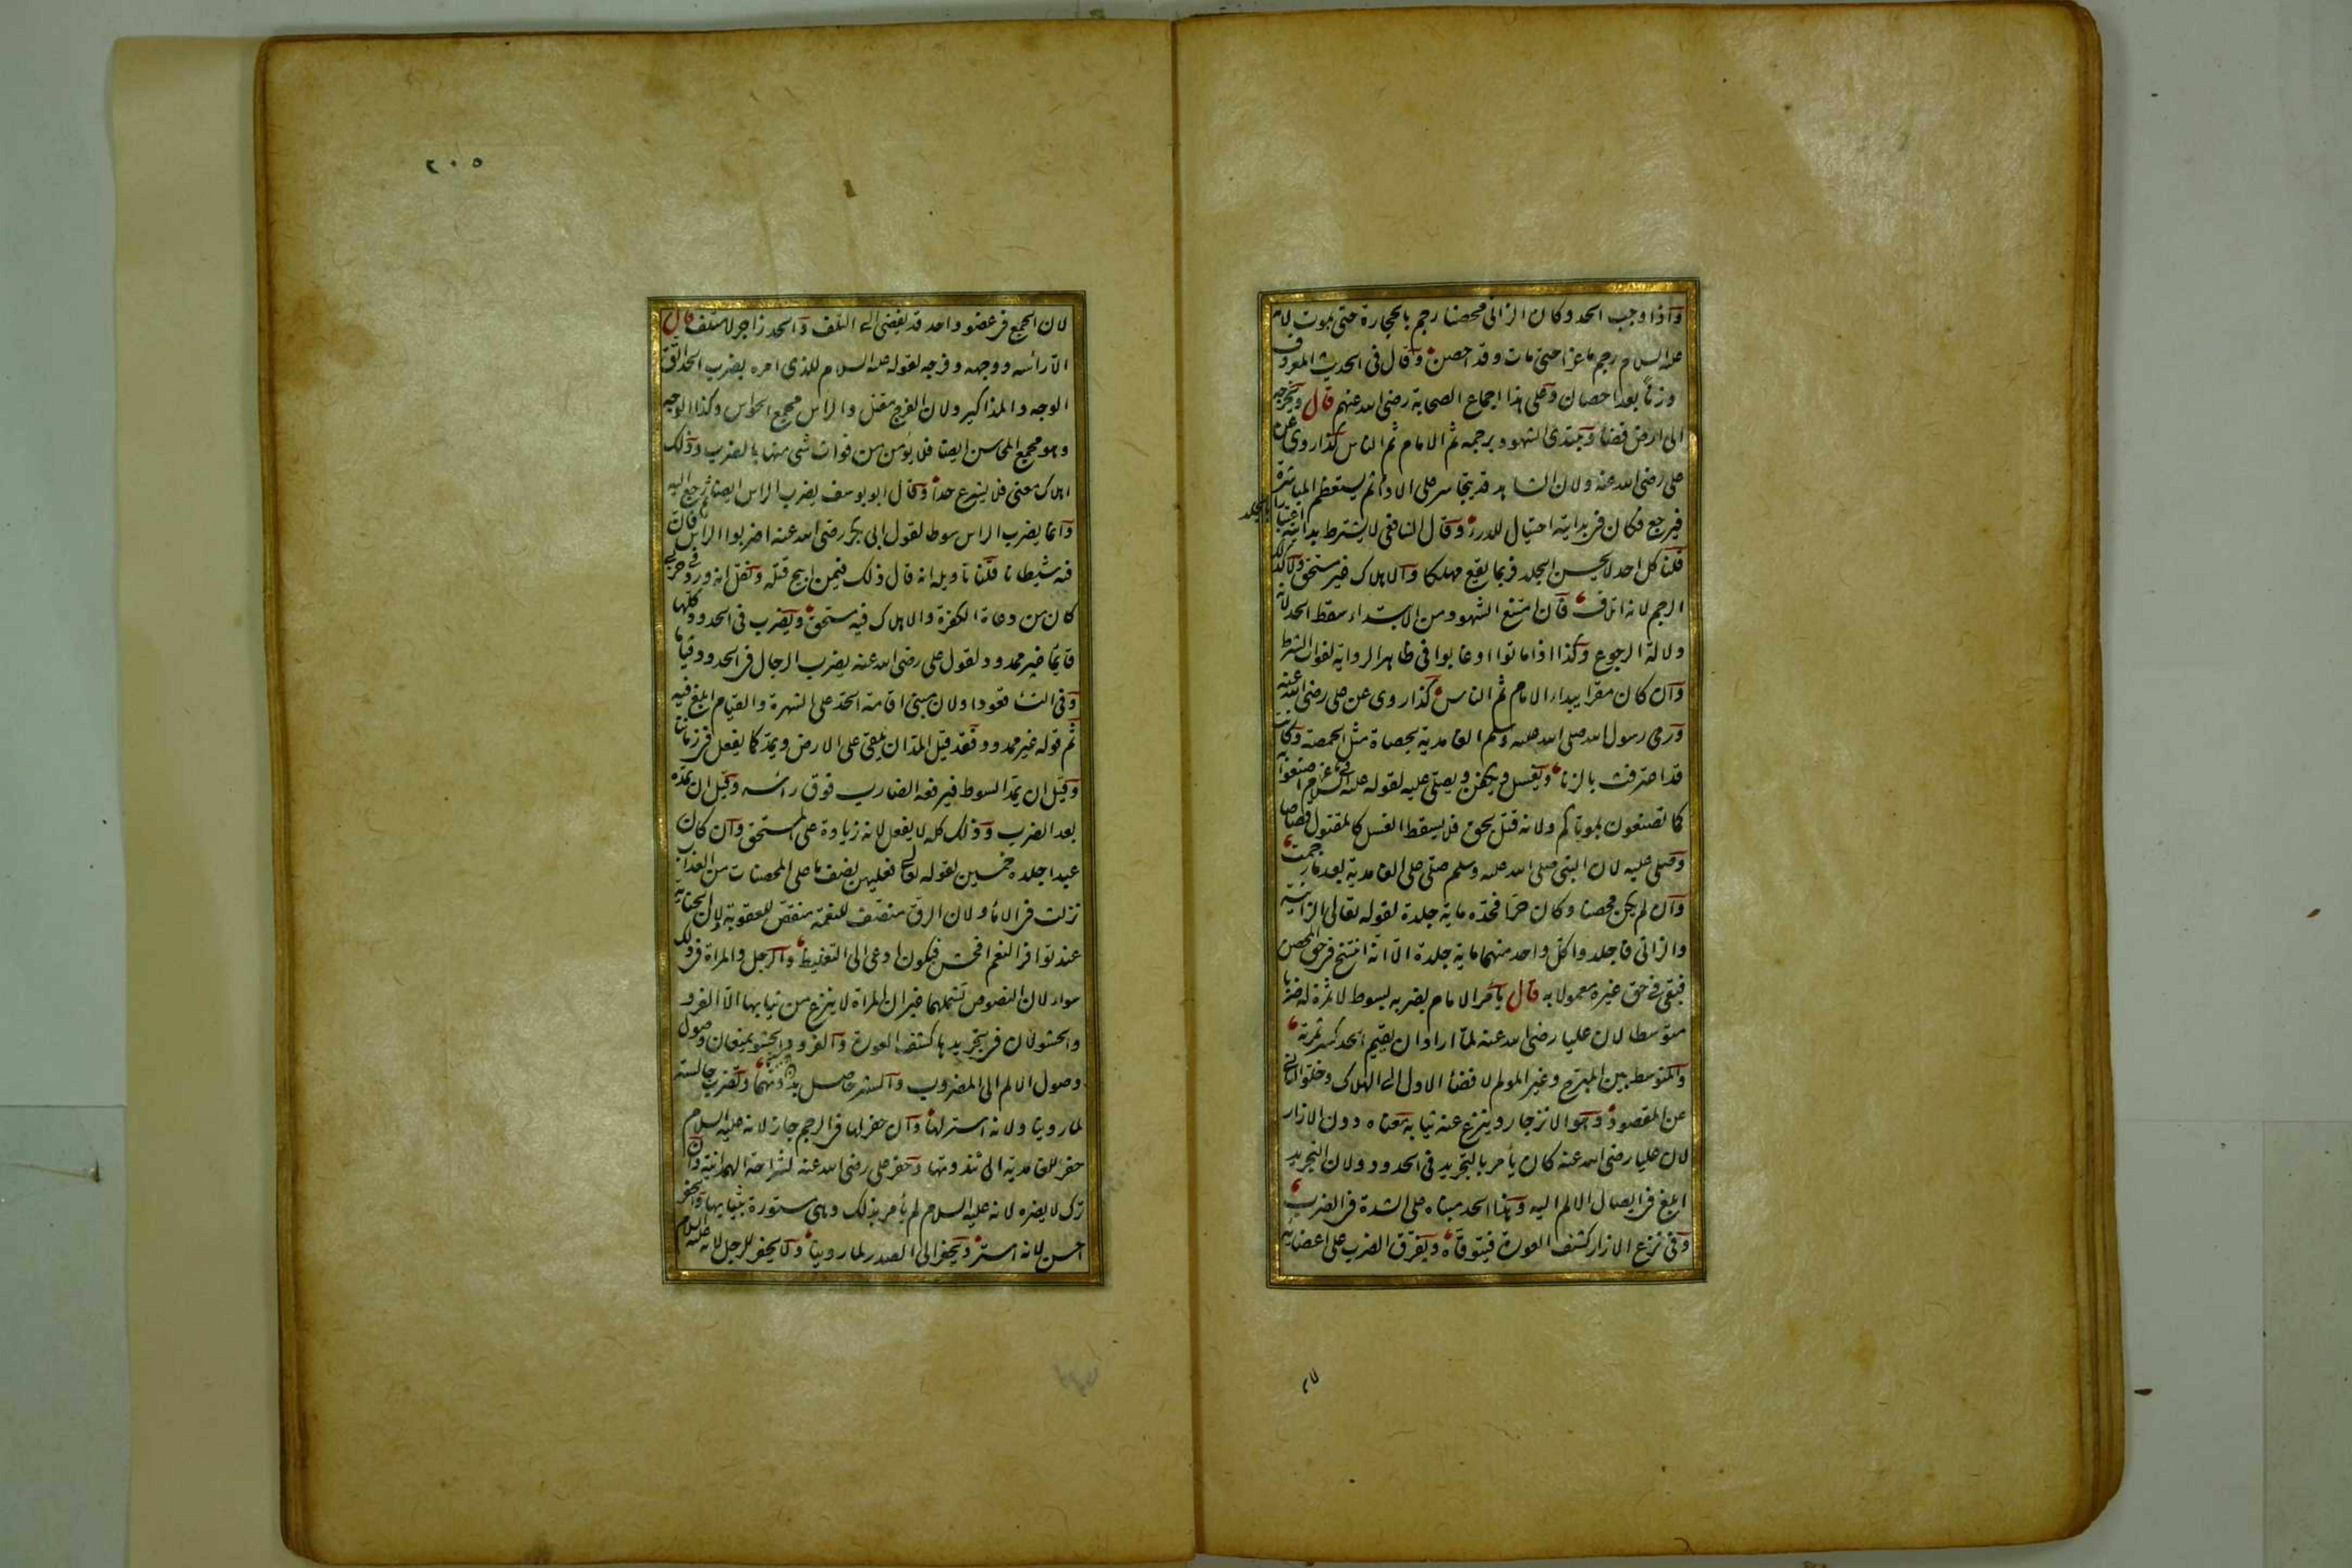 واذا وجب الحد وكان الزانى محصنا رجم بالحجارة حتى يموت لانه
عليه السلام رجم ماعزا حتى مات وقد احصن وقال فى الحديث المعروف
وزنا بعد احصان وعلى هذا اجماع الصحابة رضى الله عنهم قال ويخرجه
الى ارض فضاء ويبتدى الشهود برجمه ثم الامام ثم الناس كذا روى عن
على رضى الله عنه ولان الشاهد قد يتجاسر على الاداء ثم يستعظم المباشرة
فيرجع فكان فى بدايته احتيال للدرء وقال الشافعى لا يشترط بدايته اعتبارا بالجلد
قلنا كل احد لا يحسن الجلد فربما يقع مهلكا والاهلاك غير مستحق ولا كذلك
الرجم لانه اتلاف فان امتنع الشهود من الابتداء سقط الحد لانه
دلالة الرجوع وكذا اذا ماتوا او غابوا فى ظاهر الرواية لفوات الشرط
وان كان مقرا يبداء الامام ثم الناس كذا روى عن على رضى الله عنه
ورمى رسول الله صلى الله عليه وسلم الغامدية بحصاة مثل الحمصة وكانت
قد اعترفت بالزنا ويغسل ويكفن ويصلى عليه لقوله عليه السلام فى ماعز اصنعوا به
كما تصنعون بموتاكم ولانه قتل بحق فلا يسقط الغسل كالمقتول قصاصا
وصلى عليه لان النبى صلى الله عليه وسلم صلى على الغامدية بعد ما رجمت
وان لم يكن محصنا وكان حرا فحده ماية جلدة لقوله تعالى الزانية
والزانى فاجلدوا كل واحد منهما ماية جلدة الا انه انتسخ فى حق المحصن
فبقى فى حق غيره معمولا به قال يأمر الامام بضربه بسوط لا ثمرة له ضربا
متوسطا لان عليا رضى الله عنه لما اراد ان يقيم الحد كسر ثمرته
والمتوسط بين المبرح وغير المولم لافضاء الاول الى الهلاك وخلو الثانى
عن المقصود وهو الانزجار وينزع عنه ثيابه معناه دون الازار
لان عليا رضى الله عنه كان يأمر بالتجريد فى الحدود ولان التجريد
ابلغ فى ايصال الالم اليه وهذا الحد مبناه على الشدة فى الضرب
وفى نزع الازار كشف العورة فيتوقاه ويفرق الضرب على اعضائه
٢٠٥
لان الجمع فى عضو واحد قد يفضى الى التلف والحد زاجر لا متلف قال
الا رأسه ووجهه وفرجه لقوله عليه السلام للذى امره بضرب الحد اتق
الوجه والمذاكير ولان الفرج مقتل والراس مجمع الحواس وكذا الوجه
وهو مجمع المحاسن ايضا فلا يؤمن من فوات شئ منها بالضرب وذلك
اهلاك معنى فلا يشرع حدا وقال ابو يوسف يضرب الراس ايضا رجع اليه
وانما يضرب الراس سوطا لقول ابى بكر رضى الله عنه اضربوا الراس فان
فيه شيطانا قلنا تاويله انه قال ذلك فيمن ابيح قتله ويقال انه ورد فى حربى
كان من دعاة الكفرة والاهلاك فيه مستحق ويضرب فى الحدود كلها
قايما غير ممدود لقول على رضى الله عنه يضرب الرجال فى الحدود قياما
وفى النساء قعودا ولان مبنى اقامة الحد على الشهرة والقيام ابلغ فيه
ثم قوله غير ممدود فقد قيل المد ان يلقى على الارض ويمد كما يفعل فى زماننا
وقيل ان يمد السوط فيرفعه الضارب فوق رأسه وقيل ان يمده
بعد الضرب وذلك كله لا يفعل لانه زيادة على المستحق وان كان
عبدا جلده خمسين لقوله تعالى فعليهن نصف ما على المحصنات من العذاب
نزلت فى الاماء ولان الرق منصف للنعمة منقص للعقوبة لان الجناية
عند توافر النعم افحش فيكون ادعى الى التغليظ والرجل والمراة فى ذلك
سواء لان النصوص تشملهما غير ان المراة لا ينزع من ثيابها الا الفرو
والحشو لان فى تجريدها كشف العورة والفرو والحشو يمنعان وصول
وصول الالم الى المضروب والستر حاصل بدونهما وتضرب جالسة
لما روينا ولانه استر لها وان حفر لها فى الرجم جاز لانه عليه السلام
حفر للغامدية الى ثندوتها وحفر على رضى الله عنه لشراحة الهمدانية وان
ترك لا يضره لانه عليه السلام لم يأمر بذلك وهى مستورة بثيابها والحفر
احسن لانه استر ويحفر الى الصدر لما روينا ولا يحفر للرجل لانه عليه السلام